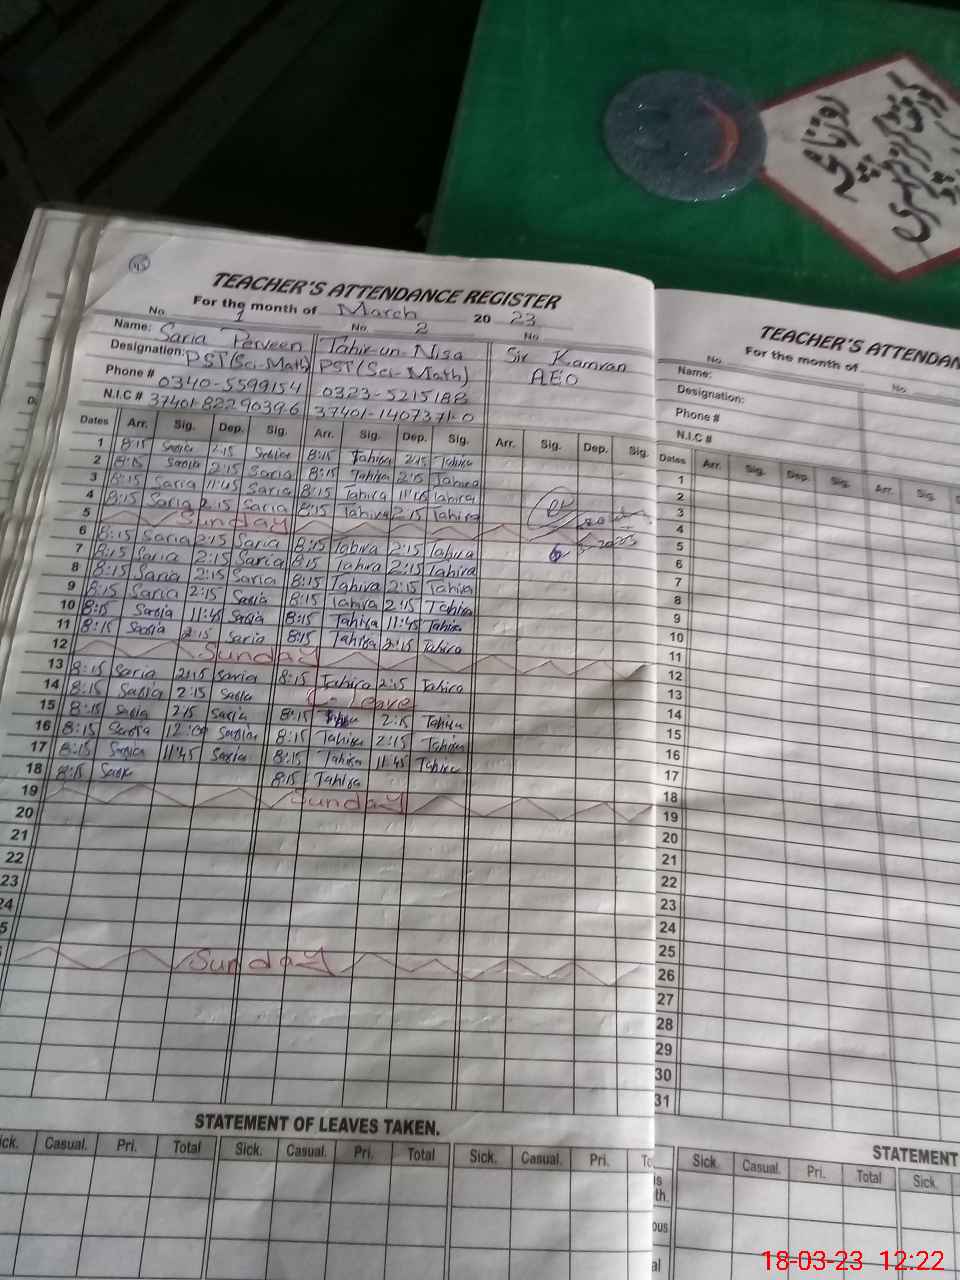 روزنامچہ
TEACHER'S ATTENDANCE REGISTER
For the month of March 2023
No. 1 No 2 No
Name: Saria Perveen Tahir-un-Nisa Sir Kamran
Designation: PST(Sci-Math) PST(Sci-Math) AEO
Phone # 0340-5599154 0323-5215188
N.I.C # 37401-8229039-6 37401-1407371-0
Dates Arr. Sig. Dep. Sig. Arr. Sig. Dep. Sig. Arr. Sig. Dep. Sig.
1 8:15 Saria 2:15 Saria 8:15 Tahira 2:15 Tahira
2 8:15 Saria 2:15 Saria 8:15 Tahira 2:15 Tahira
3 8:15 Saria 11:45 Saria 8:15 Tahira 11:45 Tahira
4 8:15 Saria 2:15 Saria 8:15 Tahira 2:15 Tahira
5 Sunday
6 8:15 Saria 2:15 Saria 8:15 Tahira 2:15 Tahira
7 8:15 Saria 2:15 Saria 8:15 Tahira 2:15 Tahira
8 8:15 Saria 2:15 Saria 8:15 Tahira 2:15 Tahira
9 8:15 Saria 2:15 Saria 8:15 Tahira 2:15 Tahira
10 8:15 Saria 11:45 Saria 8:15 Tahira 11:45 Tahira
11 8:15 Saria 2:15 Saria 8:15 Tahira 2:15 Tahira
12 Sunday
13 8:15 Saria 2:15 Saria 8:15 Tahira 2:15 Tahira
14 8:15 Saria 2:15 Saria C-Leave
15 8:15 Saria 2:15 Saria 8:15 2:15 Tahira
16 8:15 Saria 12:00 Saria 8:15 Tahira 2:15 Tahira
17 8:15 Saria 11:45 Saria 8:15 Tahira 11:45 Tahira
18 8:15 Saria 8:15 Tahira
19 Sunday
20
21
22
23
24
5
Sunday
STATEMENT OF LEAVES TAKEN.
ick. Casual. Pri. Total Sick. Casual. Pri. Total Sick. Casual. Pri. To
TEACHER'S ATTENDAN
For the month of
No. No.
Name:
Designation:
Phone #
N.I.C #
Dates Arr. Sig. Dep. Sig. Arr. Sig.
1
2
3
4
5
6
7
8
9
10
11
12
13
14
15
16
17
18
19
20
21
22
23
24
25
26
27
28
29
30
31
STATEMENT
Sick. Casual. Pri. Total Sick.
18-03-23 12:22